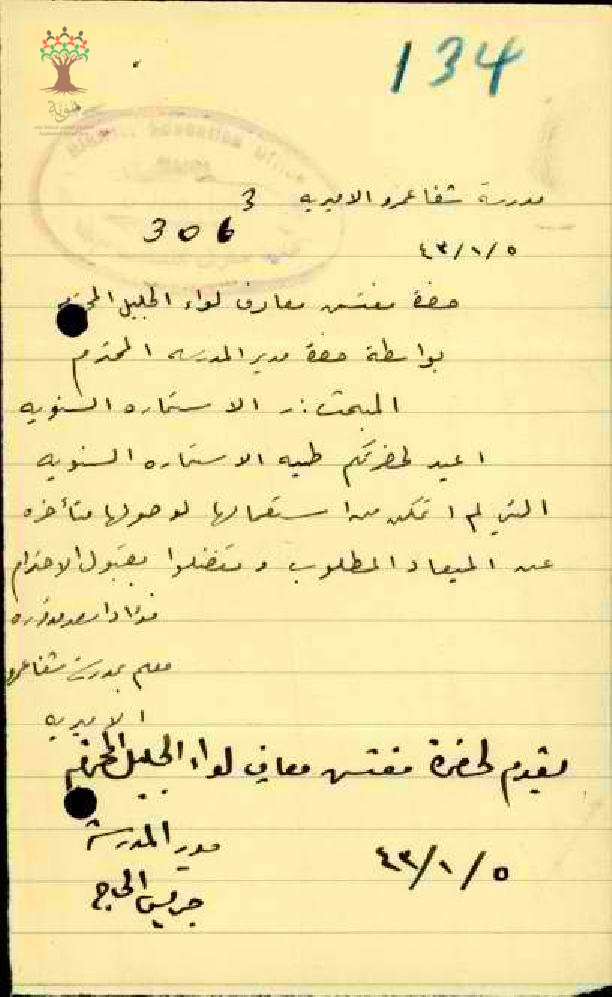 134
مدرسة شفا عمرو الاميريه
3
306
٤٣/١/٥
حضرة مفتش معارف لواء الجليل المحترم
بواسطة حضرة مدير المدرسه المحترم
المبحث :- الاستماره السنويه
اعيد لحضرتكم طيه الاستماره السنويه
التي لم اتمكن من استعمالها لوصولها متأخره
عن الميعاد المطلوب وتفضلوا بقبول الاحترام
فؤاد اسعد
معلم بمدرسة شفا عمرو
الاميريه
يقدم لحضرة مفتش معارف لواء الجليل المحترم
٤٣/١/٥
مدير المدرسة
جريس الحاج